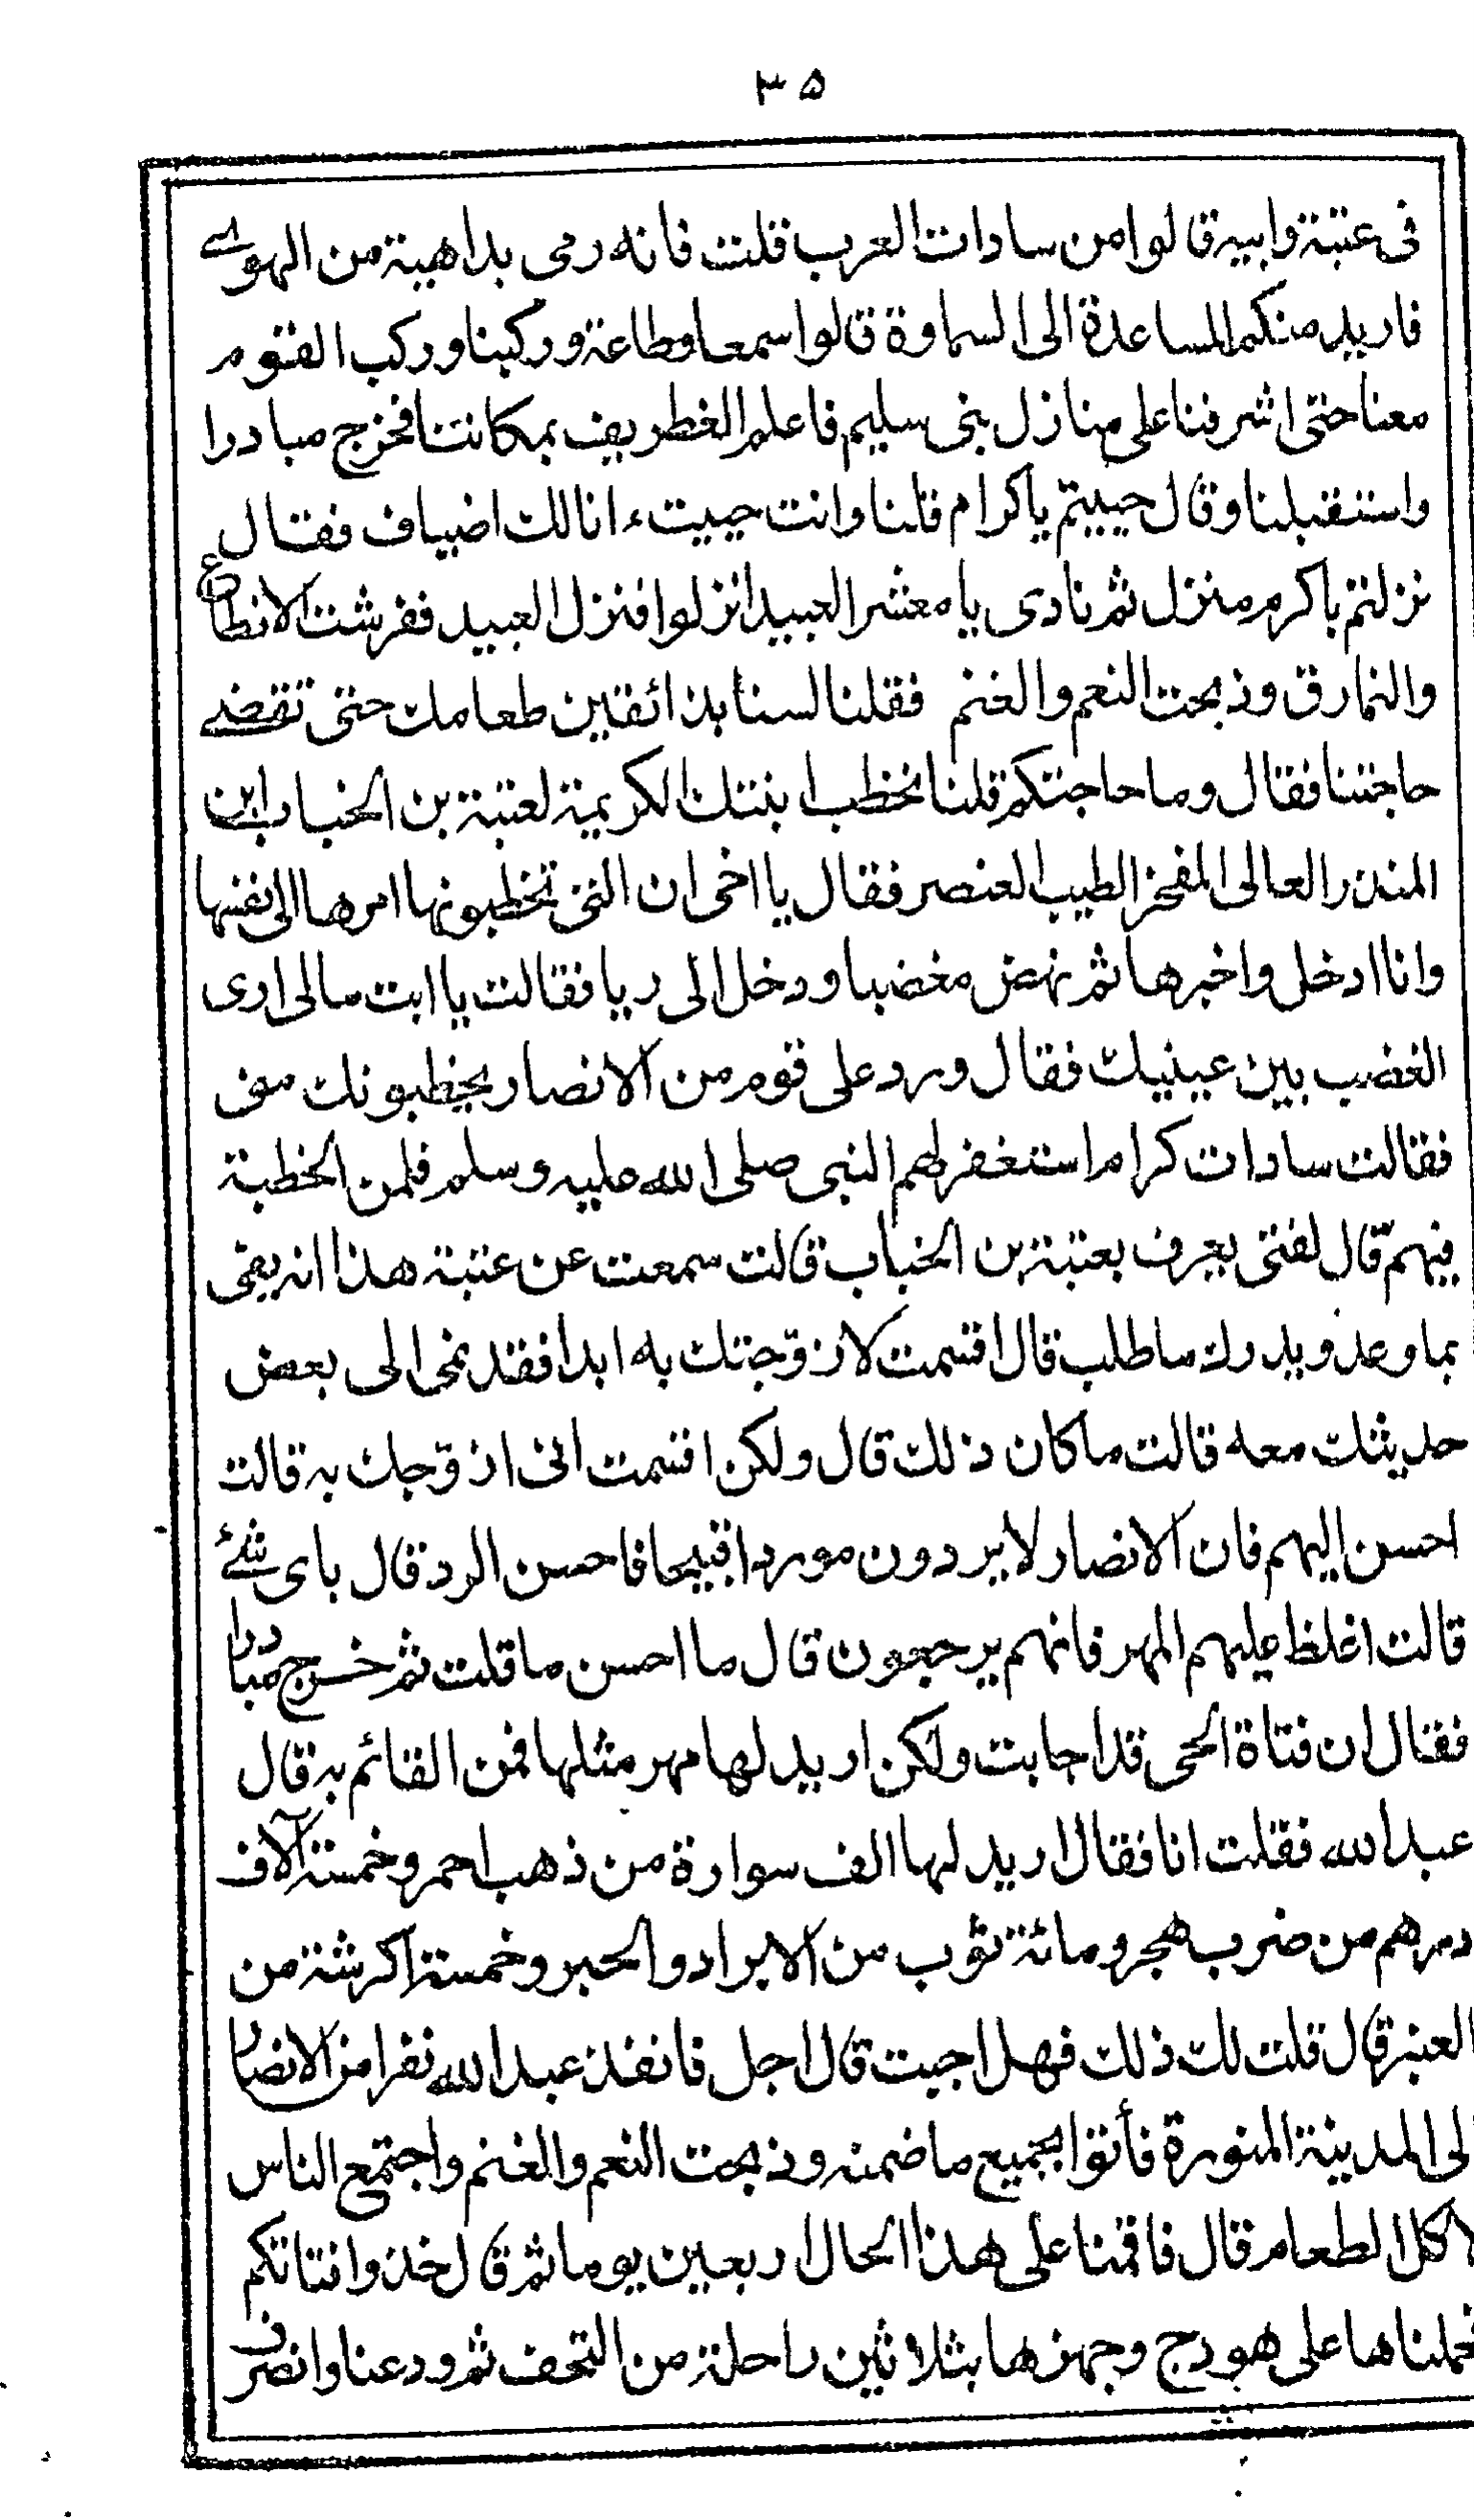 ۳۵
فى عتبة وابيه قالوا من سادات العرب قلت فانه رمى بداهية من الهوى
فاريد منكم المساعدة الى السماوة قالوا سمعا وطاعة وركبنا وركب القوم
معنا حتى اشرفنا على منازل بنى سليم فاعلم الغطريف بمكاننا فخرج مبادرا
واستقبلنا وقال حييتم ياكرام قلنا وانت حييت انا لك اضياف فقال
نزلتم باكرم منزل ثم نادى يا معشر العبيد انزلوا فنزل العبيد ففرشت الانطاع
والنمارق وذبحت النعم والغنم فقلنا لسنا بذائقين طعامك حتى تقضى
حاجتنا فقال وما حاجتكم قلنا نخطب ابنتك الكريمة لعتبة بن الخباب ابن
المنذر العالى المفخر الطيب العنصر فقال يا اخى ان التى تخطبونها امرها الى نفسها
وانا ادخل واخبرها ثم نهض مغضبا ودخل الى ريا فقالت يا ابت مالى ارى
الغضب بين عينيك فقال ورد على قوم من الانصار يخطبونك منى
فقالت سادات كرام استغفر لهم النبى صلى الله عليه وسلم فلمن الخطبة
فيهم قال لفتى يعرف بعتبة بن الخباب قالت سمعت عن عتبة هذا انه يفى
بما وعد ويدرك ما طلب قال اقسمت لازوّجتك به ابدا فقد نمى الى بعض
حديثك معه قالت ما كان ذلك قال ولكن اقسمت انى ازوّجك به قالت
احسن اليهم فان الانصار لا يردون موردا قبيحا فاحسن الرد قال باى شئ
قالت اغلظ عليهم المهر فانهم يرجعون قال ما احسن ما قلت ثم خرج مبادرا
فقال ان فتاة الحى قد اجابت ولكن اريد لها مهر مثلها فمن القائم به قال
عبد الله فقلت انا فقال اريد لها الف سوارة من ذهب احمر وخمسة آلاف
درهم من ضرب هجر ومائة ثوب من الابراد والحبر وخمسة اكرشة من
العنبر قال قلت لك ذلك فهل اجبت قال اجل فانفذ عبد الله نفرا من الانصار
لى المدينة المنورة فأتوا بجميع ما ضمنه وذبحت النعم والغنم واجتمع الناس
لاكل الطعام قال فاقمنا على هذا الحال اربعين يوما ثم قال خذوا فتاتكم
فحملناها على هودج وجهزها بثلاثين راحلة من التحف ثم ودعنا وانصرف